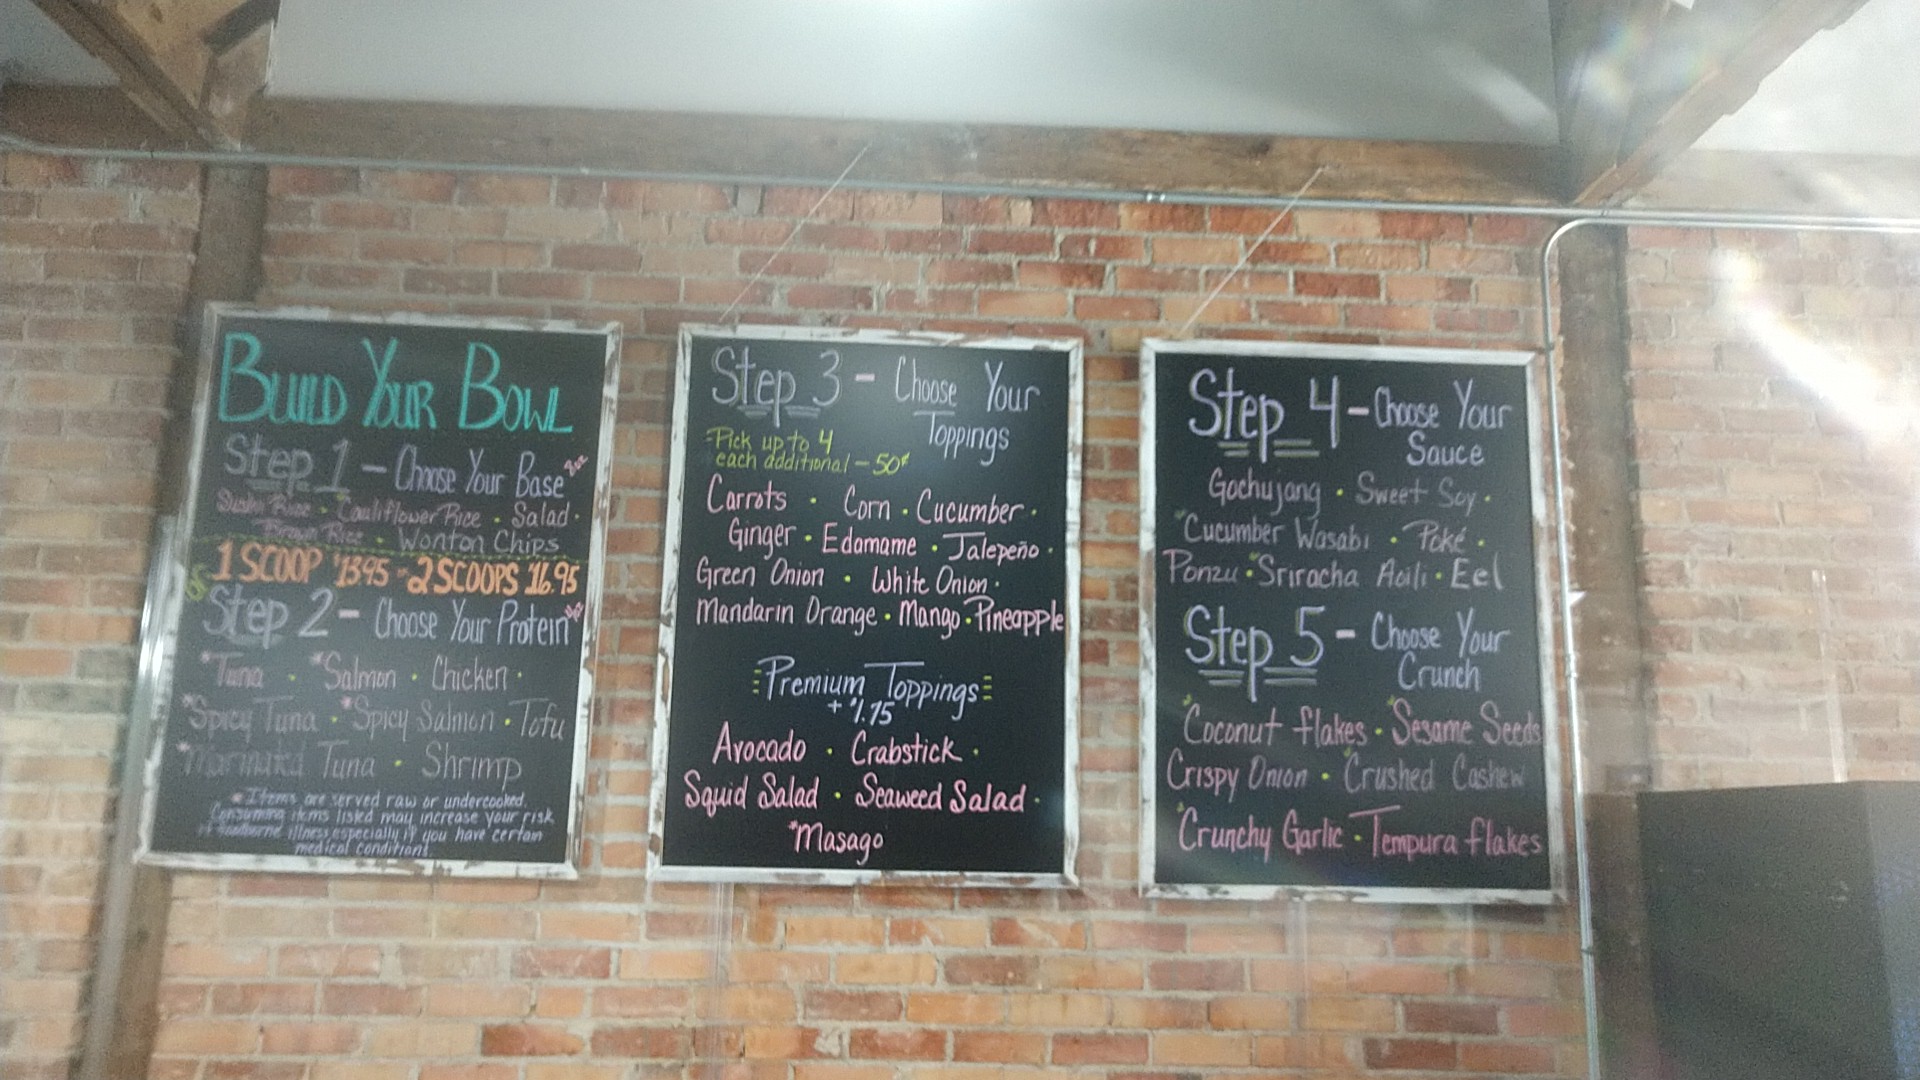 BUILD YOUR BOWL
Step 1 - Choose Your Base
Sushi Rice · Cauliflower Rice · Salad ·
Brown Rice · Wonton Chips
1 SCOOP $13.95 - 2 SCOOPS 16.95
Step 2 - Choose Your Protein
*Tuna · *Salmon · Chicken ·
*Spicy Tuna · *Spicy Salmon · Tofu
*Marinated Tuna · Shrimp
* Items are served raw or undercooked.
Consuming items listed may increase your risk
of foodborne illness especially if you have certain
medical conditions.
Step 3 - Choose Your
Toppings
-Pick up to 4
each additional - 50¢
Carrots · Corn · Cucumber ·
Ginger · Edamame · Jalepeño ·
Green Onion · White Onion ·
Mandarin Orange · Mango · Pineapple
Premium Toppings
+ $1.75
Avocado · Crabstick ·
Squid Salad · Seaweed Salad ·
*Masago
Step 4 - Choose Your
Sauce
Gochujang · Sweet Soy ·
Cucumber Wasabi · Poké ·
Ponzu · Sriracha Aoili · Eel
Step 5 - Choose Your
Crunch
Coconut flakes · Sesame Seeds
Crispy Onion · Crushed Cashew
Crunchy Garlic · Tempura flakes